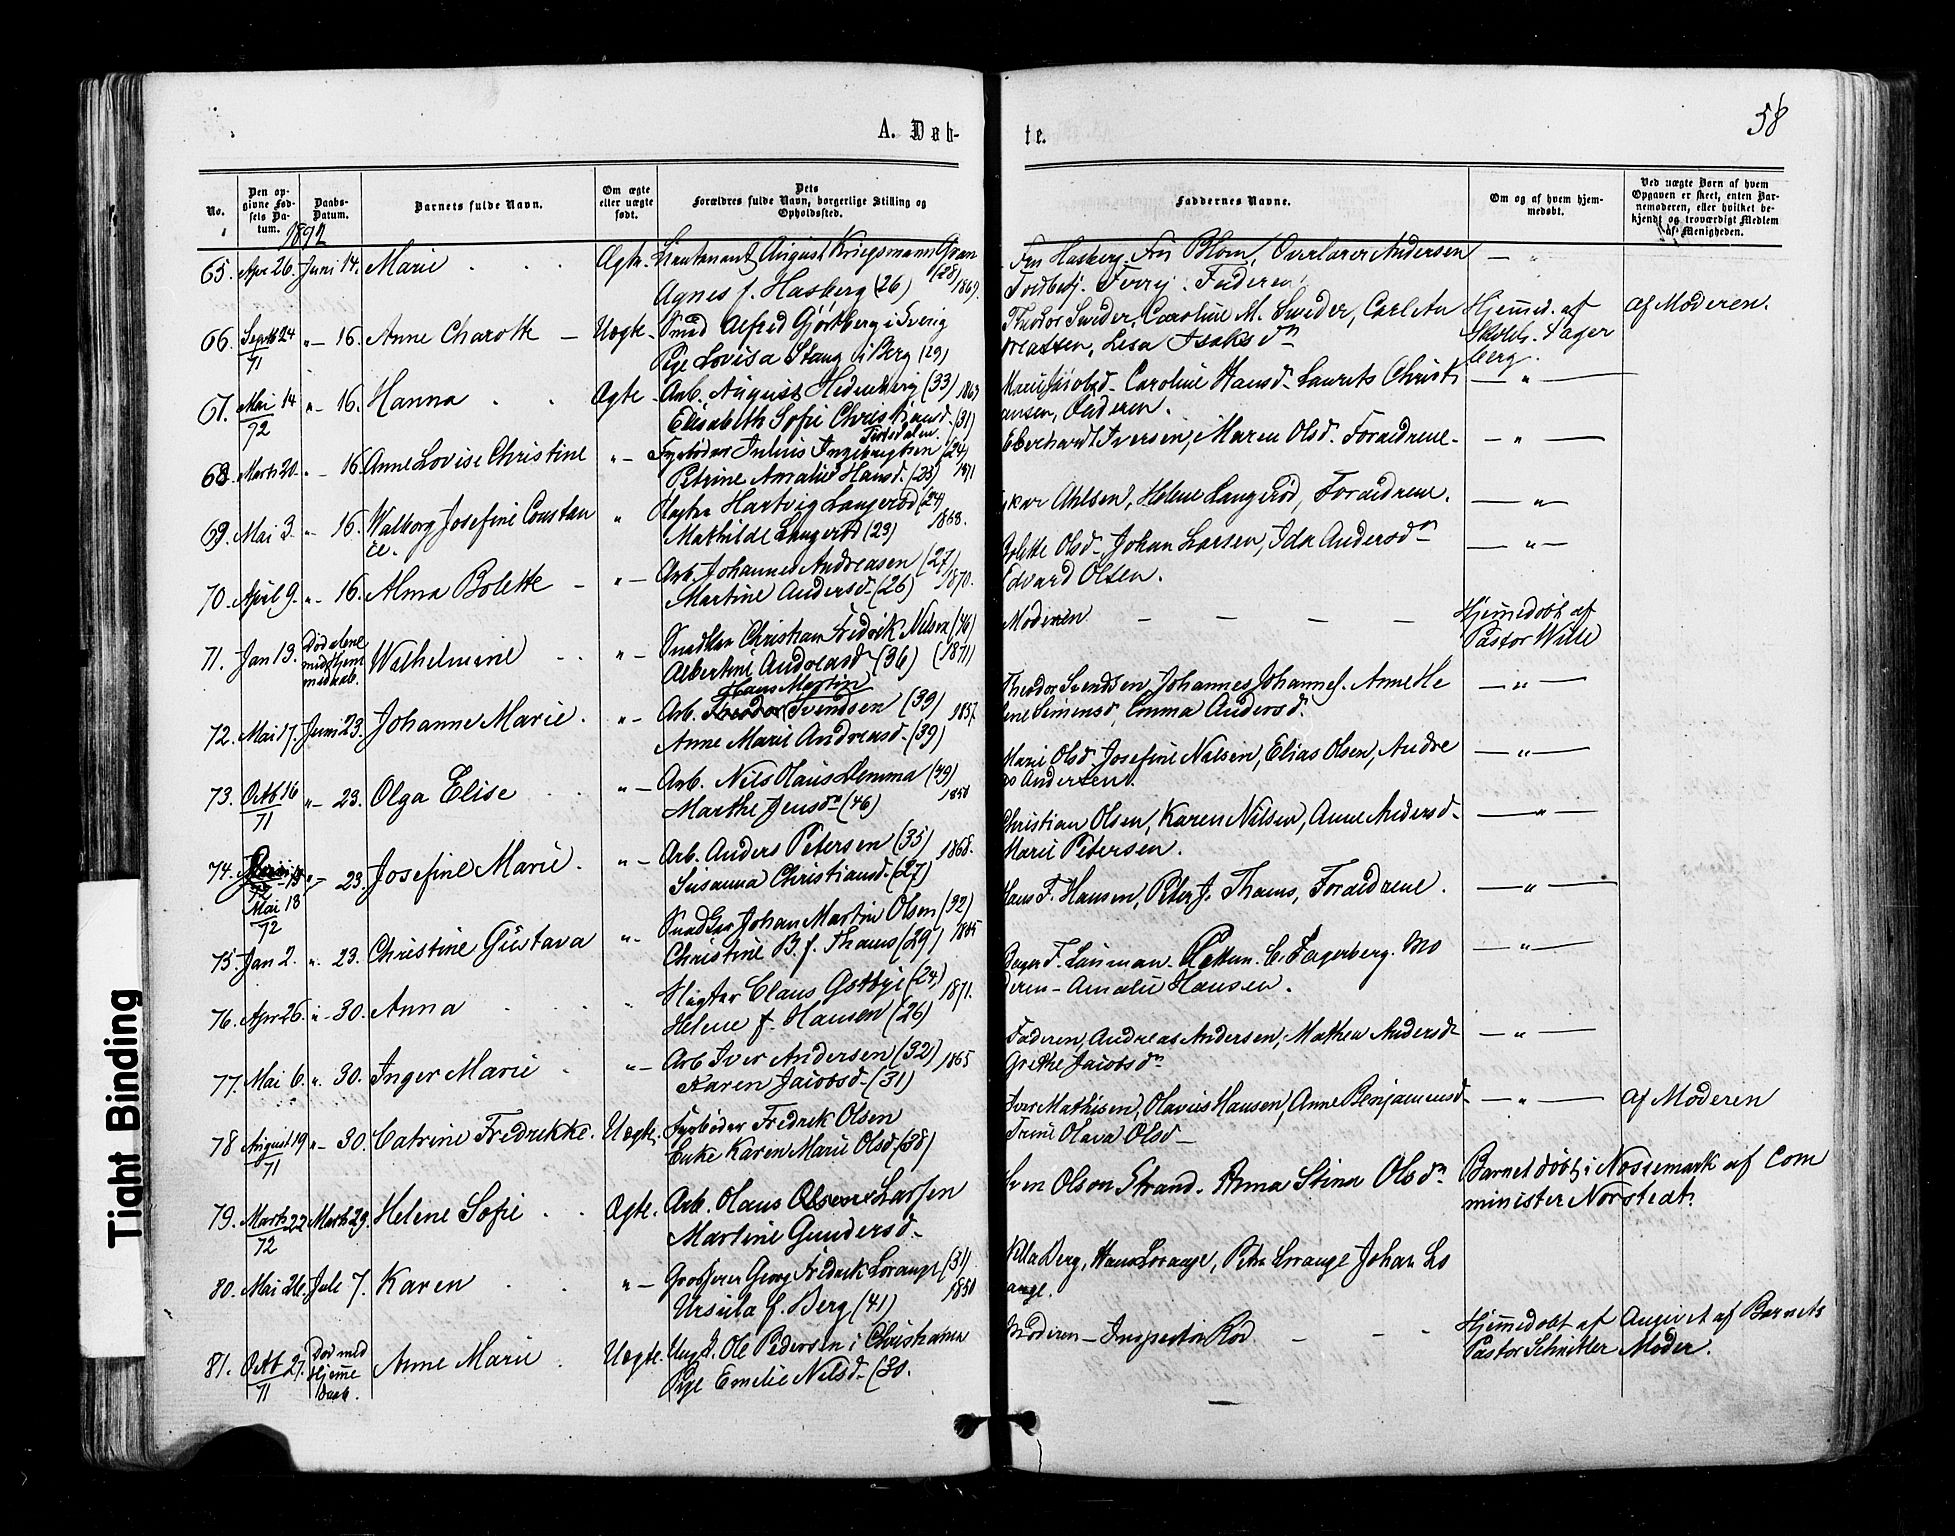 A. Døb-
te.
58
No.
Den opgivne Fødsels Datum.
Daabs-Datum.
Barnets fulde Navn.
Om ægte eller uægte født.
Dets Forældres fulde Navn, borgerlige Stilling og Opholdsted.
Faddernes Navne.
Om og af hvem hjemmedøbt.
Ved uægte Børn af hvem Opgaven er skeet, enten Barnemoderen, eller hvilket bekjendt og troværdigt Medlem af Menigheden.
65. Apr 26. Juni 14. Marie Ægte. Lieutenant August Kriegsmann Gran (28) 1869. Fru Hasberg, Fru Blom, Overlærer Andersen
Agnes f. Hasberg (26) Toldbetj. Faderen
66. Septb 24 71 " 16. Anne Charotte Uægte. Smed Alfred Gjørtberg i Sverig Theodor Sweder, Caroline M. Sweder, Carl An Hjemmed. af af Moderen.
Pige Lovisa Stang i Berg (29) dreassen, Lesa Isaksdn Skolel. Fager
berg.
67. Mai 14 72 " 16. Hanna Ægte Arb. August Hedenberg (33) Marie Jacobsd. Caroline Hansd. Laurets Christi — " —
Elisabeth Sofie Christiansd. (31) ansen, Faderen.
68. Marts 20. " 16 Anne Lovise Christine " Fyrbøder Julius Ingebrigtsen (24) Tistedalen. Eberhardt Iversen, Maren Olsd. Forældrene — " —
Petrine Amalie Hansd. (23) 1871
69. Mai 3. " 16. Walborg Josefine Constan " Slagter Hartvig Langerød (24) Oskar Ahlsen, Helene Langerød, Forældrene. — " —
ce. Mathilde Langerød (23) 1868.
70. April 9. " 16. Alma Bolette " Arb. Johannes Andreasen (27) Bolette Olsd. Johan Larsen, Ida Andersdn — " —
Martine Andersd. (26) 1870. Edvard Olsen.
71. Jan 13. Død alene med Hjemmedaab. Wilhelmine " Snedker Christian Fredrik Nilsen (46) Moderen Hjemmedøbt af
Albertine Andreasd. (36) (1871) Pastor Wille
72. Mai 17. Juni 23. Johanne Marie " Arb. Hans Martin Svendsen (39) 1857 Theodor Svendsen, Johannes Johannes. Anne He — " —
Anne Marie Andreasd. (39) lene Simensd. Emma Andersd.
73. Octb 16 71 " 23. Olga Elise " Arb. Nils Olaus Lemma (49) 1850 Marie Olsd. Josefine Nilsen, Elias Olsen, Andre — " —
Marthe Jensdn (46) as Andersen.
74. Mai 13 72 " 23. Josefine Marie " Arb. Anders Petersen (35) 1868. Christian Olsen, Karen Nilsen, Anne Andersd. — " —
Susanna Christiansd. (27) Marie Petersen.
75. Jan 2. " 23. Christine Gustava " Snedker Johan Martin Olsen (32) Hans F. Hansen, Peter J. Thams, Forældrene. — " —
Christine B. f. Thams (29) 1865
76. Apr 26. " 30. Anna " Slagter Claus Østbye (24) 1871. C. Fagerberg. Mo — " —
Helene f. Hansen (26) deren - Amalie Hansen.
77. Mai 6. " 30. Inger Marie " Arb Iver Andersen (32) 1865 Faderen, Andreas Andersen, Mathea Andersd. — " —
Karen Jacobsd. (31) Grethe Jacobsdn
78 August 19 71 " 30. Catrine Fredrekke. Uægte. Fyrbøder Fredrek Olsen Iver Mathisen, Olavus Hansen, Anne Benjaminsd. — " — af Moderen
Enke Karen Marie Olsd. (38) Trine Olava Olsd.
79. Marts 22 72 Marts 29. Helene Sofie Ægte. Arb. Olaus Larsen Sven Olson Strand. Anna Stina Olsdn Barnet døbt i Nössemark af Com
Martine Gundersd. minister Norstedt.
80. Mai 26. Juli 7. Karen " Grosserer Georg Fredrek Lorange (31) Hans Lorange, Petra Lorange Johan Lo
Ursula f. Berg (41) range.
81. Octb 27. 71 Død med Hjemme Daab. Anne Marie Uægte. Ung. Ole Pedersen i Christiania Moderen - Inspecteur Hjemmedøbt af Angivet af Barnets
Pige Emelie Nilsd. (30. Pastor Schnitler Moder.
Tight Binding